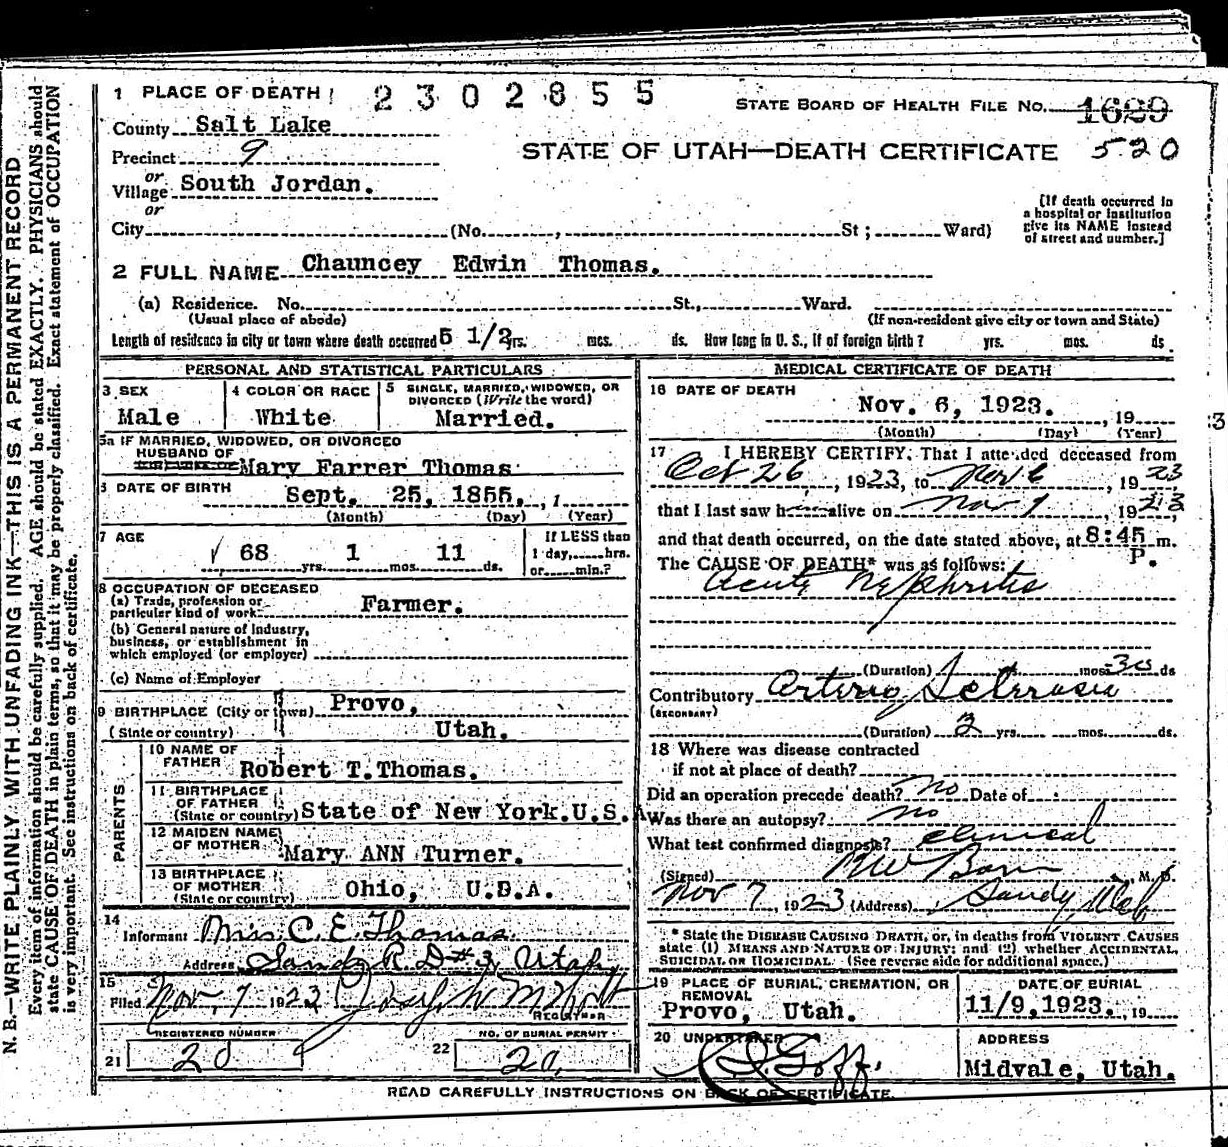 1 PLACE OF DEATH 2302855 STATE BOARD OF HEALTH FILE NO. 1629
County Salt Lake
Precinct 9 STATE OF UTAH—DEATH CERTIFICATE 520
or
Village South Jordan.
or
City (No. , St ; Ward)
[If death occurred in
a hospital or institution
give its NAME instead
of street and number.]
2 FULL NAME Chauncey Edwin Thomas.
(a) Residence. No. St., Ward.
(Usual place of abode) (If non-resident give city or town and State)
Length of residence in city or town where death occurred 5 1/2 yrs. mos. ds. How long in U. S., if of foreign birth ? yrs. mos. ds.
PERSONAL AND STATISTICAL PARTICULARS
3 SEX
Male
4 COLOR OR RACE
White
5 SINGLE, MARRIED, WIDOWED, OR
DIVORCED (Write the word)
Married.
5a IF MARRIED, WIDOWED, OR DIVORCED
HUSBAND OF
Mary Farrer Thomas
6 DATE OF BIRTH
Sept. 25, 1855. , 1
(Month) (Day) (Year)
7 AGE
68 yrs. 1 mos. 11 ds.
If LESS than
1 day, hrs.
or min.?
8 OCCUPATION OF DECEASED
(a) Trade, profession or
particular kind of work Farmer.
(b) General nature of Industry,
business, or establishment in
which employed (or employer)
(c) Name of Employer
9 BIRTHPLACE (City or town) Provo,
(State or country) Utah.
PARENTS
10 NAME OF
FATHER Robert T. Thomas.
11 BIRTHPLACE
OF FATHER
(State or country) State of New York. U.S.A
12 MAIDEN NAME
OF MOTHER Mary ANN Turner.
13 BIRTHPLACE
OF MOTHER
(State or country) Ohio, U.S.A.
14
Informant Mrs C. E. Thomas
Address Sandy R. D # 3, Utah
15
Filed Nov. 7 1923
REGISTRAR
REGISTERED NUMBER
21 20
NO. OF BURIAL PERMIT
22 20
MEDICAL CERTIFICATE OF DEATH
16 DATE OF DEATH
Nov. 6, 1923. , 19
(Month) (Day) (Year)
17 I HEREBY CERTIFY, That I attended deceased from
Oct 26 , 1923, to Nov 6 , 1923
that I last saw h alive on Nov , 1923,
and that death occurred, on the date stated above, at 8:45 m.
P.
The CAUSE OF DEATH* was as follows:
Acute Nephritis
(Duration) mos. 30 ds
Contributory Arterio Sclerosis
(SECONDARY)
(Duration) yrs. mos. ds.
18 Where was disease contracted
if not at place of death?
Did an operation precede death? no Date of
Was there an autopsy? no
What test confirmed diagnosis? clinical
(Signed) , M. D.
Nov 7 , 1923 (Address) Sandy, Utah
* State the DISEASE CAUSING DEATH, or, in deaths from VIOLENT CAUSES
state (1) MEANS AND NATURE OF INJURY; and (2) whether ACCIDENTAL,
SUICIDAL OR HOMICIDAL. (See reverse side for additional space.)
19 PLACE OF BURIAL, CREMATION, OR
REMOVAL
Provo, Utah.
DATE OF BURIAL
11/9,1923. , 19
20 UNDERTAKER
Goff.
ADDRESS
Midvale, Utah.
READ CAREFULLY INSTRUCTIONS ON BACK OF CERTIFICATE.
N. B.—WRITE PLAINLY WITH UNFADING INK—THIS IS A PERMANENT RECORD
Every item of information should be carefully supplied. AGE should be stated EXACTLY. PHYSICIANS should
state CAUSE OF DEATH in plain terms, so that it may be properly classified. Exact statement of OCCUPATION
is very important. See instructions on back of certificate.